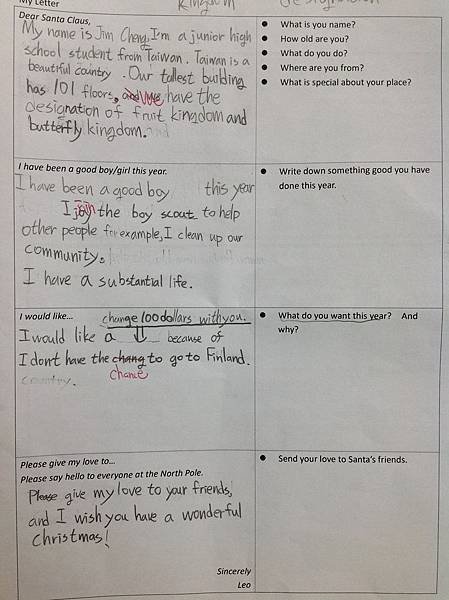 My Letter
kingdom designation
Dear Santa Claus,
My name is Jim Cheng, I'm a junior high
school student from Taiwan. Taiwan is a
beautiful country. Our tallest building
has 101 floors, and we have the
designation of fruit kingdom and
butterfly kingdom.
● What is you name?
● How old are you?
● What do you do?
● Where are you from?
● What is special about your place?
I have been a good boy/girl this year.
I have been a good boy this year
join
I joy the boy scout to help
other people for example, I clean up our
community.
I have a substantial life.
● Write down something good you have
done this year.
I would like... change 100 dollars with you.
I would like a ⇓ because of
I don't have the chang to go to Finland.
chance
country.
● What do you want this year? And
why?
Please give my love to...
Please say hello to everyone at the North Pole.
Please give my love to your friends,
and I wish you have a wonderful
christmas!
Sincerely
Leo
● Send your love to Santa's friends.